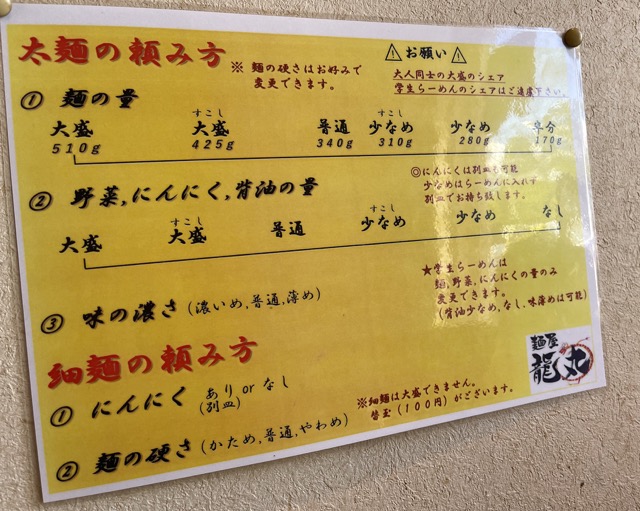 太麺の頼み方
※ 麺の硬さはお好みで
変更できます。
⚠お願い⚠
大人同士の大盛のシェア
学生らーめんのシェアはご遠慮下さい。
① 麺の量
大盛 すこし大盛 普通 すこし少なめ 少なめ 半分
510g 425g 340g 310g 280g 170g
② 野菜,にんにく,背油の量
◎にんにくは別皿も可能
少なめはらーめんに入れず
別皿でお持ち致します。
大盛 すこし大盛 普通 すこし少なめ 少なめ なし
③ 味の濃さ (濃いめ,普通,薄め)
★学生らーめんは
麺,野菜,にんにくの量のみ
変更できます。
(背油少なめ,なし,味薄めは可能)
細麺の頼み方
① にんにく あり or なし
(別皿)
② 麺の硬さ (かため,普通,やわめ)
※細麺は大盛できません。
替玉(100円)がございます。
麺屋
龍丸